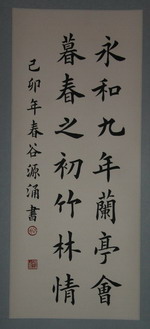 永和九年蘭亭會
暮春之初竹林情
己卯年春谷源涌書